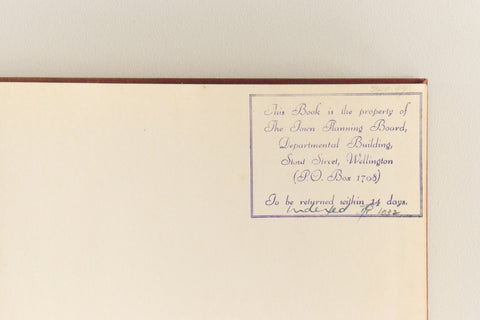 This Book is the property of
The Town Planning Board,
Departmental Building,
Stout Street, Wellington
(P.O. Box 1708)
To be returned within 14 days.
Indexed